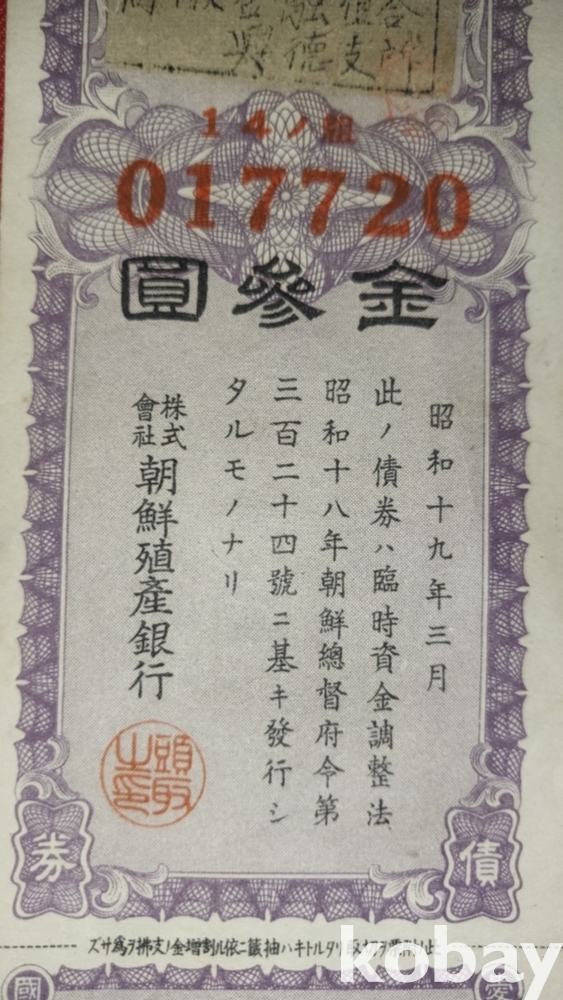 14ノ組
017720
金參圓
昭和十九年三月
此ノ債券ハ臨時資金調整法
昭和十八年朝鮮總督府令第
三百二十四號ニ基キ發行シ
タルモノナリ
株式會社朝鮮殖產銀行
頭取之印
債
券
籤ニ依ル割增金ノ支拂ヲ爲サズ
kobay
國